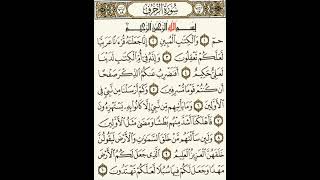 سُورَةُ الزُّخْرُفِ
بِسْمِ اللَّهِ الرَّحْمَٰنِ الرَّحِيمِ
حمٓ ١ وَالْكِتَٰبِ الْمُبِينِ ٢ إِنَّا جَعَلْنَٰهُ قُرْءَٰنًا عَرَبِيًّا
لَّعَلَّكُمْ تَعْقِلُونَ ٣ وَإِنَّهُۥ فِىٓ أُمِّ الْكِتَٰبِ لَدَيْنَا
لَعَلِىٌّ حَكِيمٌ ٤ أَفَنَضْرِبُ عَنكُمُ الذِّكْرَ صَفْحًا
أَن كُنتُمْ قَوْمًا مُّسْرِفِينَ ٥ وَكَمْ أَرْسَلْنَا مِن نَّبِىٍّ فِى
الْأَوَّلِينَ ٦ وَمَا يَأْتِيهِم مِّن نَّبِىٍّ إِلَّا كَانُوا۟ بِهِۦ يَسْتَهْزِءُونَ
٧ فَأَهْلَكْنَآ أَشَدَّ مِنْهُم بَطْشًا وَمَضَىٰ مَثَلُ الْأَوَّلِينَ
٨ وَلَئِن سَأَلْتَهُم مَّنْ خَلَقَ السَّمَٰوَٰتِ وَالْأَرْضَ لَيَقُولُنَّ
خَلَقَهُنَّ الْعَزِيزُ الْعَلِيمُ ٩ الَّذِى جَعَلَ لَكُمُ الْأَرْضَ
مَهْدًا وَجَعَلَ لَكُمْ فِيهَا سُبُلًا لَّعَلَّكُمْ تَهْتَدُونَ ١٠